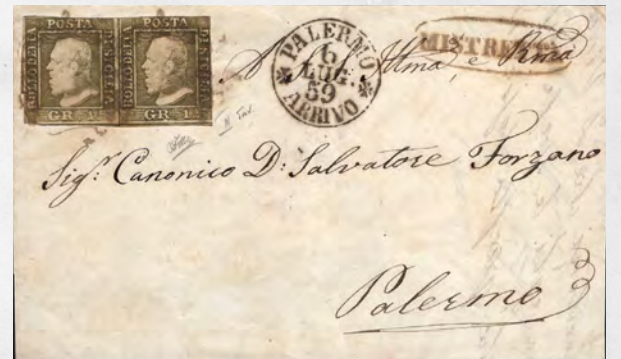 POSTA POSTA
BOLLO DELLA DI SICILIA BOLLO DELLA DI SICILIA
GR. 1. GR. 1.
PALERMO
6
LUG.
59
ARRIVO
MISTRETTA
A S. Illma e Rma
Sigr. Canonico D: Salvatore Forzano
Palermo